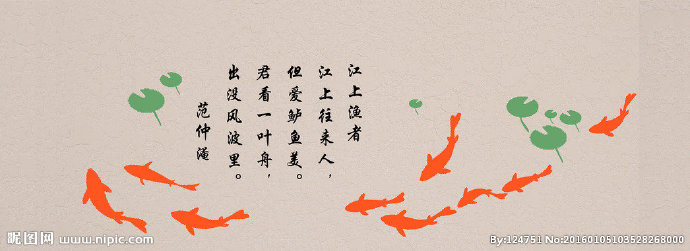 江上渔者
江上往来人，
但爱鲈鱼美。
君看一叶舟，
出没风波里。
范仲淹
昵图网 www.nipic.com
By:124751 No:20160105103528268000